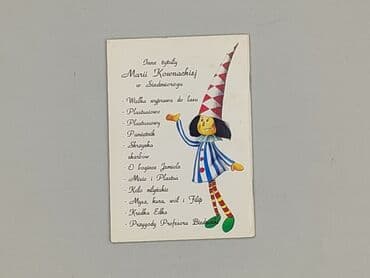 Inne tytuły
Marii Kownackiej
w Siedmiorogu
- Wielka wyprawa do lasu
- Plastusiowo
- Plastusiowy
Pamiętnik
- Skrzynka
skarbów
- O bogince Jamiole
- Misie i Plastus
- Koło młyńskie
- Mysz, kura, wół i Filip
- Kredka Edka
- Przygody Profesora